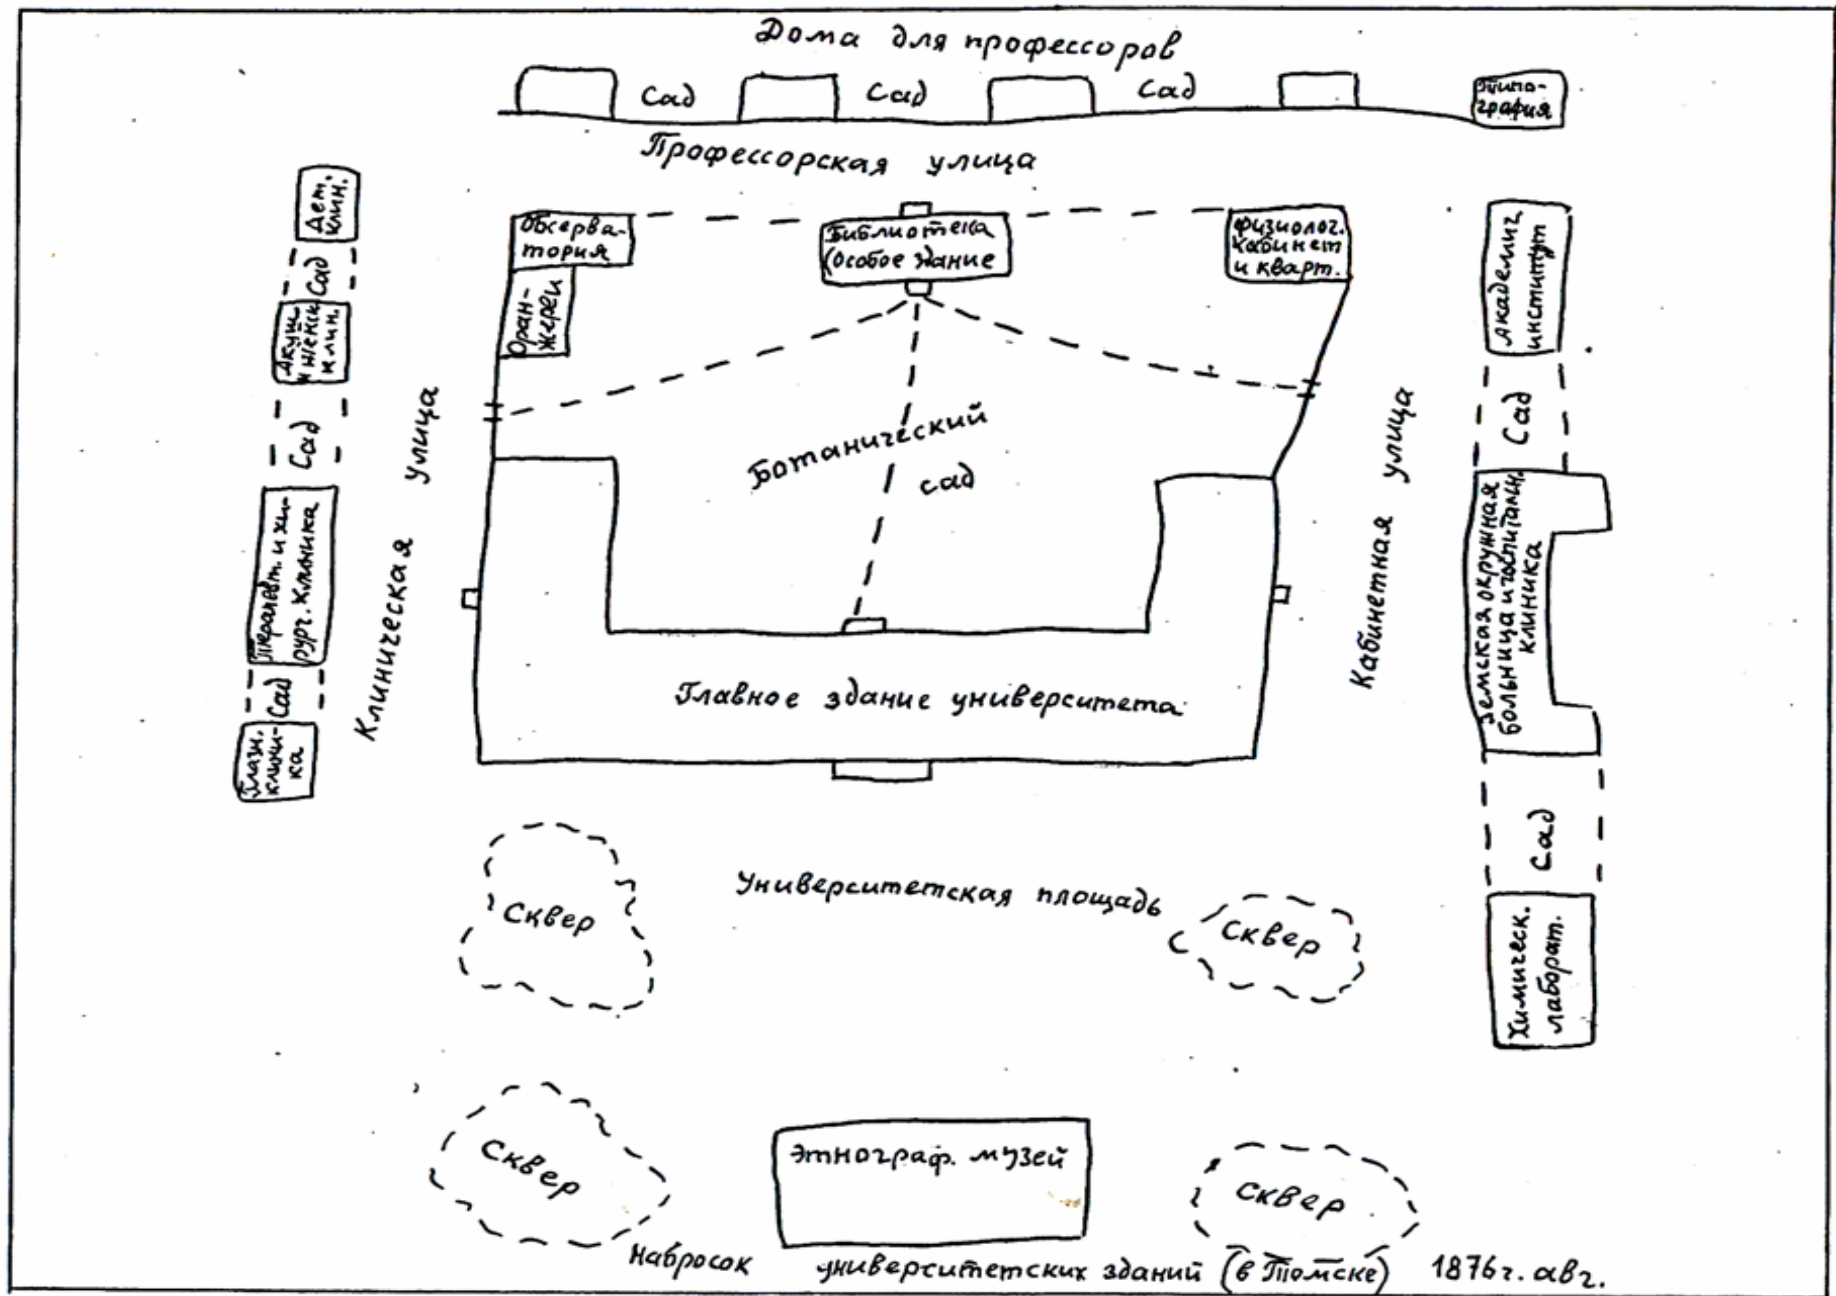 Дома для профессоров
Сад
Сад
Сад
Типо-
графия
Профессорская улица
Дет.
клин.
Сад
Акуш.
и женск.
клин.
Сад
Терапевт. и хи-
рург. клиника
Сад
Глазн.
клини-
ка
Клиническая улица
Обсерва-
тория
Оран-
жереи
Библиотека
(особое здание
Физиолог.
кабинет
и кварт.
Ботанический
сад
Главное здание университета
Кабинетная улица
Академич.
институт
Сад
Земская окружная
больница и госпитальн.
клиника
Сад
Химическ.
лаборат.
Университетская площадь
Сквер
Сквер
Сквер
Этнограф. музей
Сквер
Набросок университетских зданий (в Томске) 1876 г. авг.